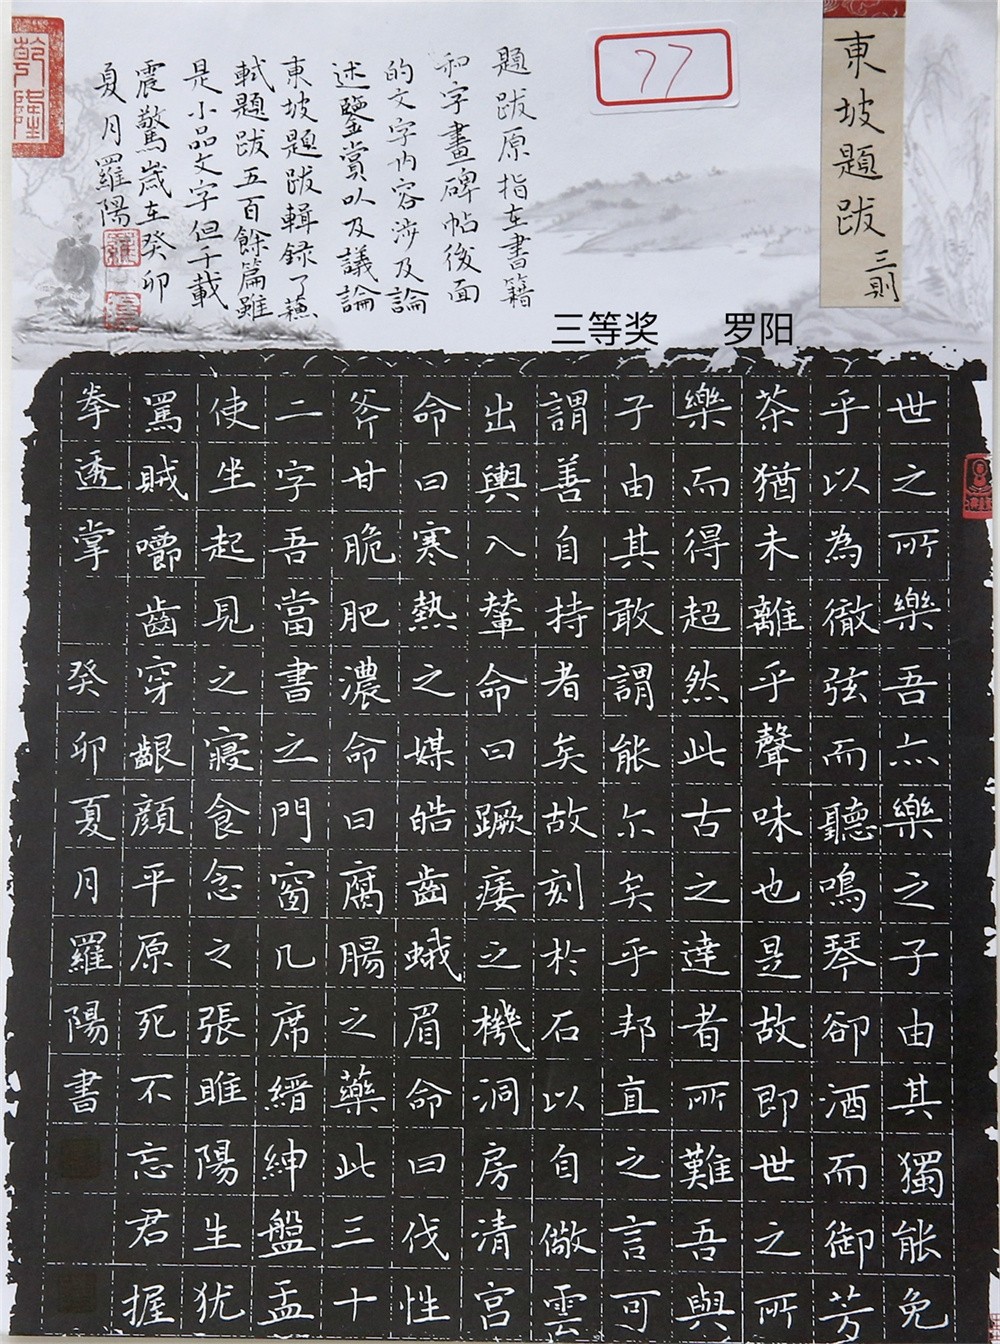 東坡題跋 三則
77
題跋原指在書籍
和字畫碑帖後面
的文字内容涉及論
述鑒賞以及議論
東坡題跋輯録了蘇
軾題跋五百餘篇雖
是小品文字但千載
震驚歲在癸卯
夏月羅陽
乾隆
三等奖 罗阳
世之所樂吾亦樂之子由其獨能免
乎以為徹弦而聽鳴琴卻酒而御芳
茶猶未離乎聲味也是故即世之所
樂而得超然此古之達者所難吾與
子由其敢謂能尔矣乎邦直之言可
謂善自持者矣故刻於石以自儆雲
出輿入輦命曰蹶痿之機洞房清宮
命曰寒熱之媒皓齒蛾眉命曰伐性
斧甘脆肥濃命曰腐腸之藥此三十
二字吾當書之門窗几席縉紳盤盂
使坐起見之寢食念之張雎陽生犹
罵賊嚼齒穿齦顏平原死不忘君握
拳透掌 癸卯夏月羅陽書